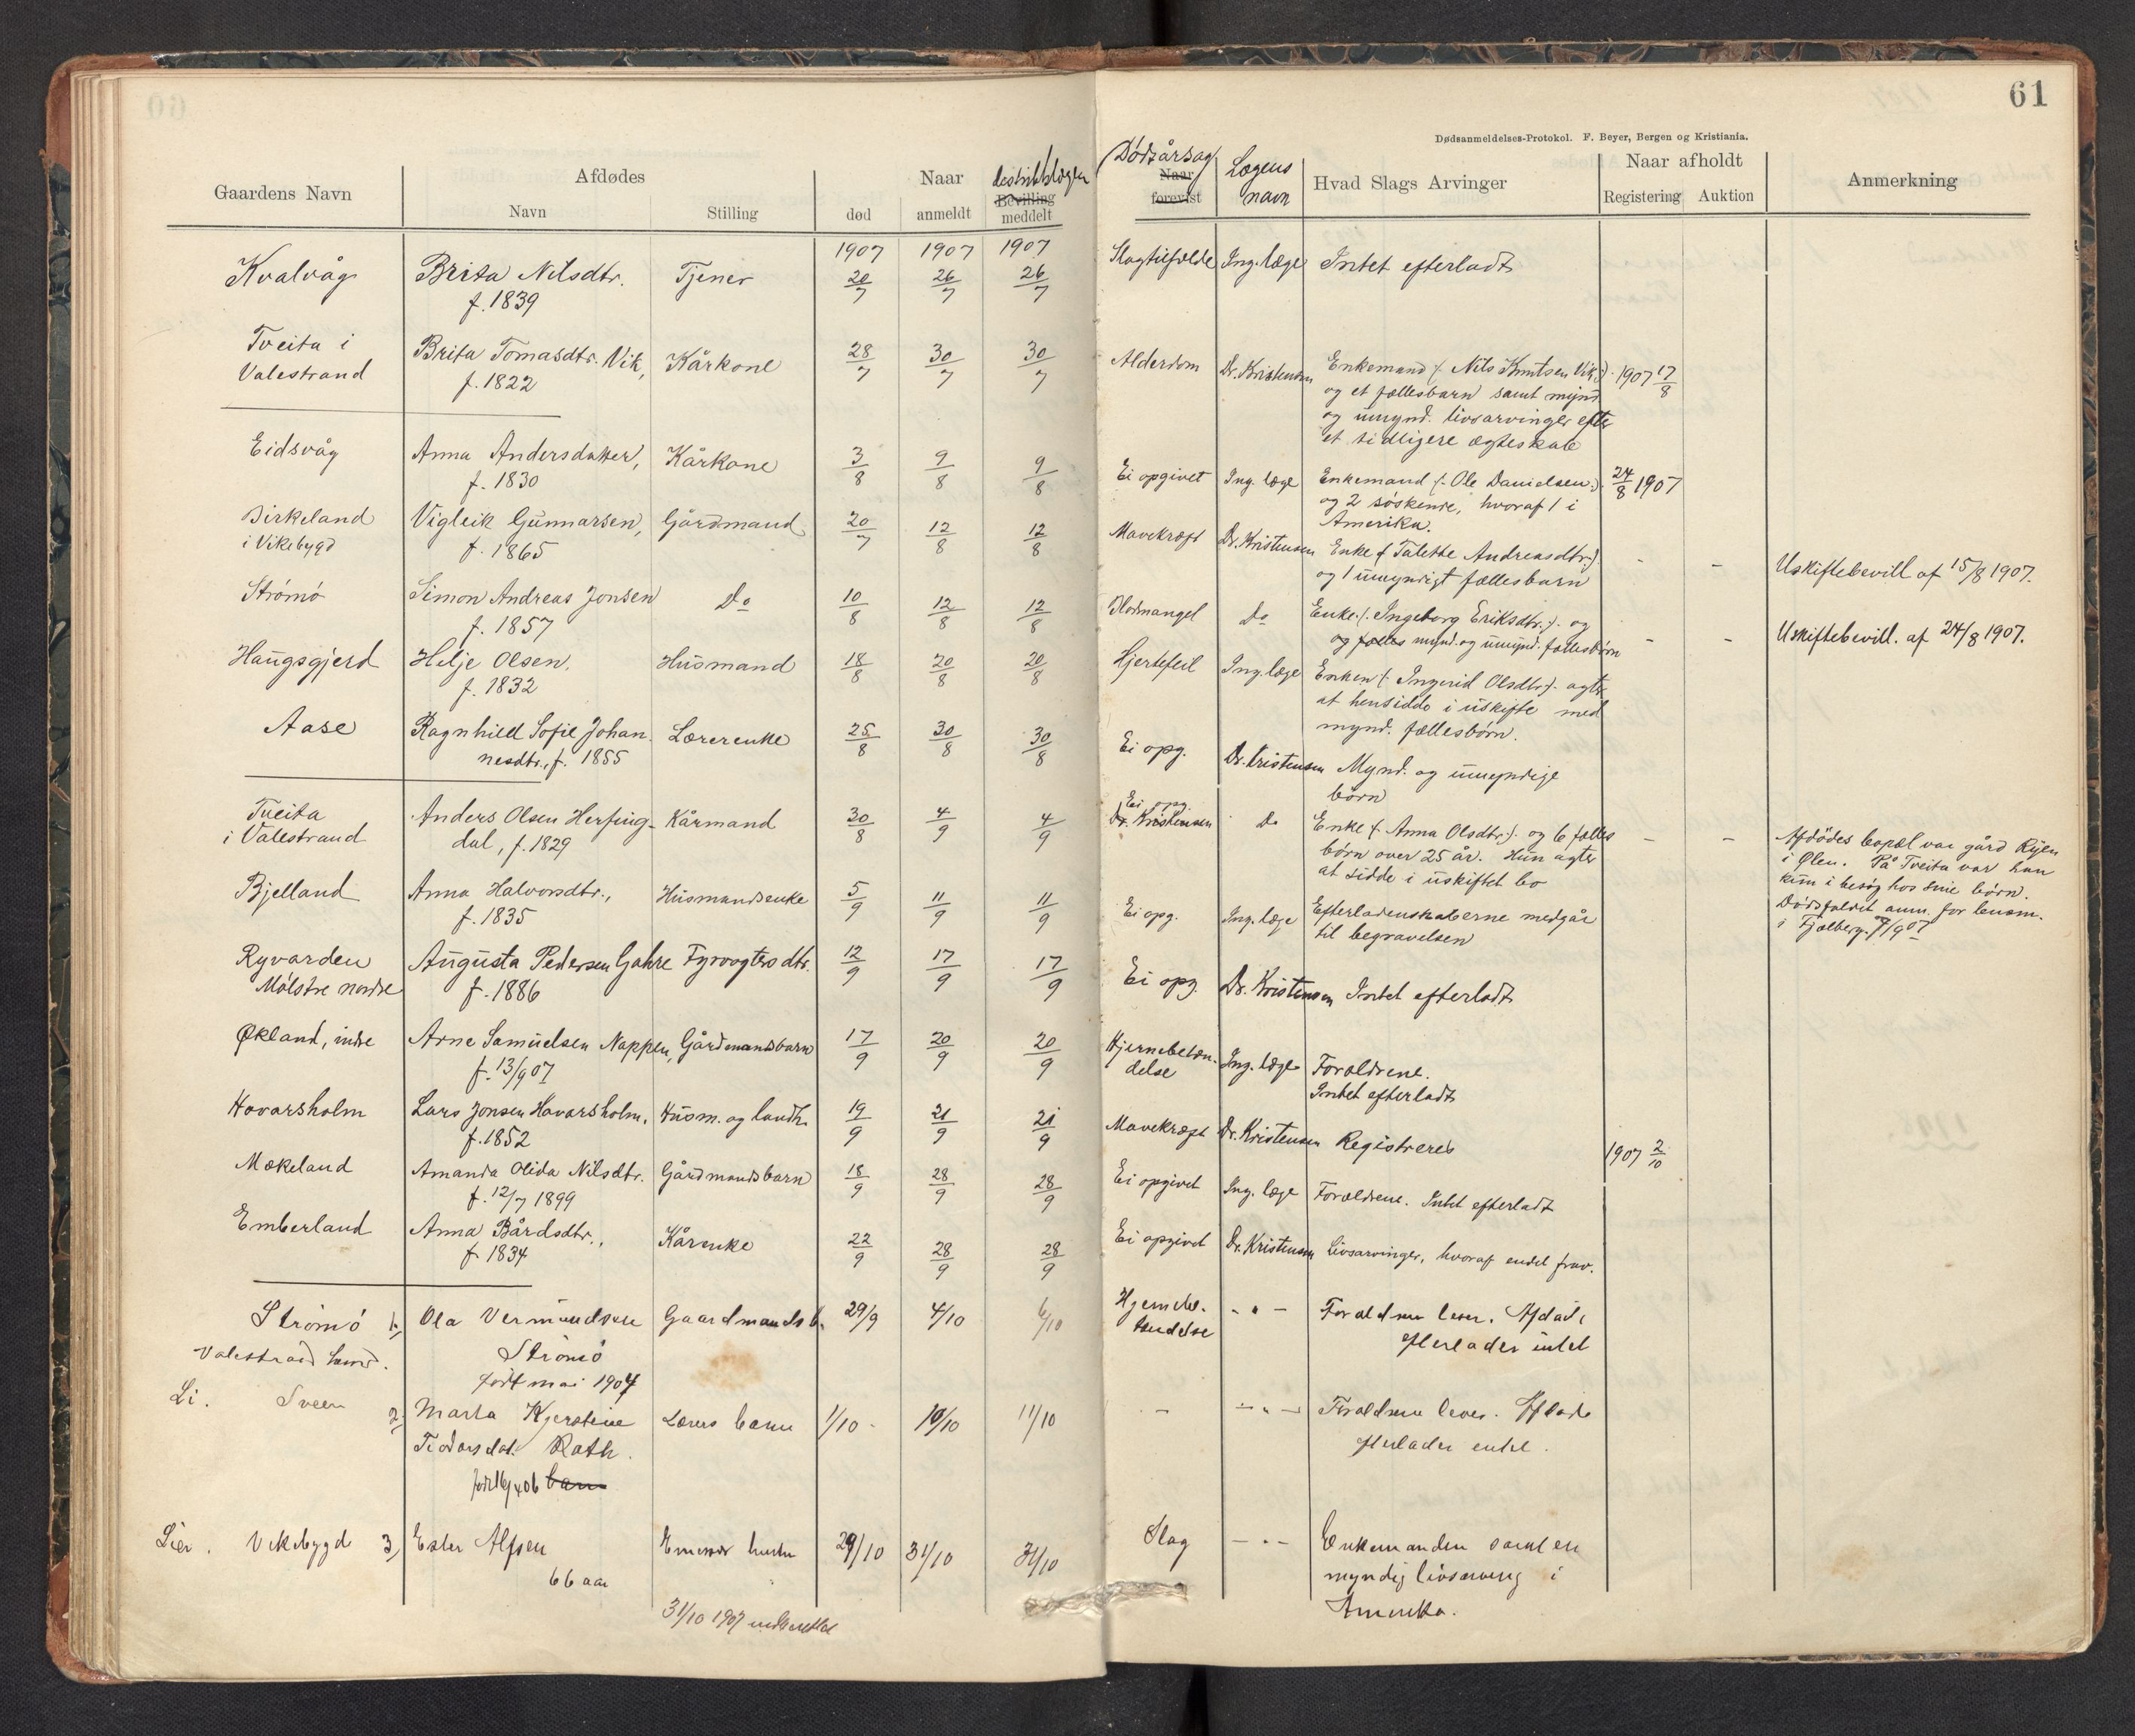 61
Dødsanmeldelses-Protokol. F. Beyer, Bergen og Kristiania.
Gaardens Navn
Afdødes
Navn
Stilling
Naar
død
anmeldt
Bevilling
meddelt
Dødsårsag
Naar
forevist
Lægens
navn
Hvad Slags Arvinger
Naar afholdt
Registering
Auktion
Anmerkning
1907 1907 1907
Kvalvåg Brita Nilsdtr. Tjener 20/7 26/7 26/7 Slagtilfælde Ing. læge Intet efterladt
f. 1839
Tveita i Brita Tomasdtr. Vik, Kårkone 28/7 30/7 30/7 Alderdom Dr. Kristensen Enkemand (: Nils Knutsen Vik :) 1907 17/8
Valestrand f. 1822 og et fællesbarn samt mynd.
og umynd. livsarvinger efter
et tidligere ægteskab
Eidsvåg Anna Andersdatter, Kårkone 3/8 9/8 9/8 Ei opgivet Ing. læge Enkemand (: Ole Danielsen :) 24/8 1907
f. 1830 og 2 søskende, hvoraf 1 i
Amerika.
Birkeland Vigleik Gunnarsen, Gårdmand 20/7 12/8 12/8 Mavekræft Dr. Kristensen Enke (: Talette Andreasdtr. :) - - Uskiftebevill af 15/8 1907.
i Vikebygd f. 1865 og 1 umyndigt fællesbarn
Strømø Simon Andreas Jonsen Do 10/8 12/8 12/8 Blodmangel Do Enke (: Ingeborg Eriksdtr. :) og - - Uskiftebevill. af 24/8 1907.
f. 1857 og fælles mynd. og umynd. fællesbørn
Haugsgjerd Helje Olsen, Husmand 18/8 20/8 20/8 Hjertefeil Ing. læge Enken (: Ingerid Olsdtr. :) agter
f. 1832 at hensidde i uskifte med
mynd. fællesbørn.
Aase Ragnhild Sofie Johan- Lærerenke 25/8 30/8 30/8 Ei opg. Dr. Kristensen Mynd. og umyndige
nesdtr., f. 1855 børn
Tveita Anders Olsen Herfing- Kårmand 30/8 4/9 4/9 Ei opg. Dr. Kristensen Do Enke (: Anna Olsdtr. :) og 6 fælles - - Afdödes bopæl var gård Rijen
i Valestrand dal, f. 1829 børn over 25 år. Hun agter i Ølen. På Tveita var han
at sidde i uskiftet bo kun i besøg hos sine børn.
Dødsfaldet anm. for lensm.
i Fjelberg 7/9 07
Bjelland Anna Halvorsdtr., Husmandsenke 5/9 11/9 11/9 Ei opg. Ing. læge Efterladenskaberne medgår
f. 1835 til begravelsen
Ryvarden Augusta Pedersen Gahre Fyrvogtersdtr. 12/9 17/9 17/9 Ei opg. Dr. Kristensen Intet efterladt
Mølstre nordre f. 1886
Økland, indre Arne Samuelsen Nappen, Gårdmandsbarn 17/9 20/9 20/9 Hjernebetæn- Ing. læge Forældrene.
f. 13/9 07 delse Intet efterladt
Hovarsholm Lars Jonsen Havarsholm, Husm. og landh. 19/9 21/9 21/9 Mavekræft Dr. Kristensen Registreres 1907 2/10
f. 1852
Mækeland Amanda Olida Nilsdtr. Gårdmandsbarn 18/9 28/9 28/9 Ei opgivet Ing. læge Forældrene. Intet efterladt
f. 12/7 1899
Emberland Anna Bårdsdtr., Kårenke 22/9 28/9 28/9 Ei opgivet Dr. Kristensen Livsarvinger, hvoraf endel frav.
f. 1834
Strømø 1. Ola Vermundsen Gaardmandsb. 29/9 4/10 6/10 - " - Forældrene lever. Afdøde
Strømø efterlader intet
født mai 1904
Li. Sveen 2. Marta Kjerstine Lærers barn 1/10 - 10/10 11/10 - - " - Forældrene lever. Afdøde
Rath. efterlader intet.
barn
Lier. Vikebygd 3, Ester Alfsen hustru 29/10 31/10 31/10 Slag - " - Enkemanden samt en
66 aar myndig livsarving i
Amerika.
31/10 1907